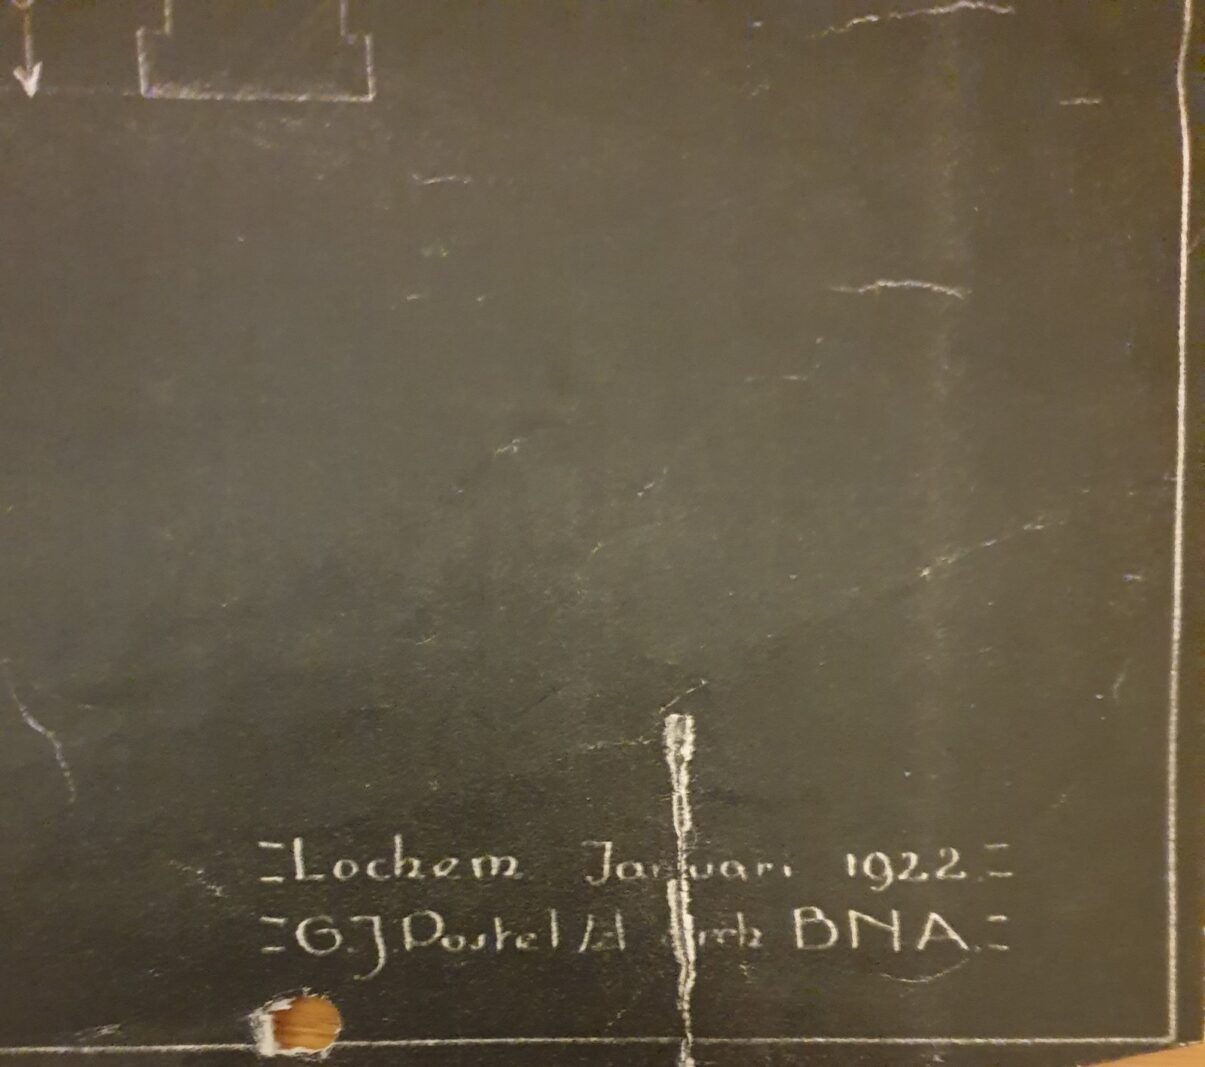 =Lochem Januari 1922.=
=G.J. Postel /zl arch BNA.=